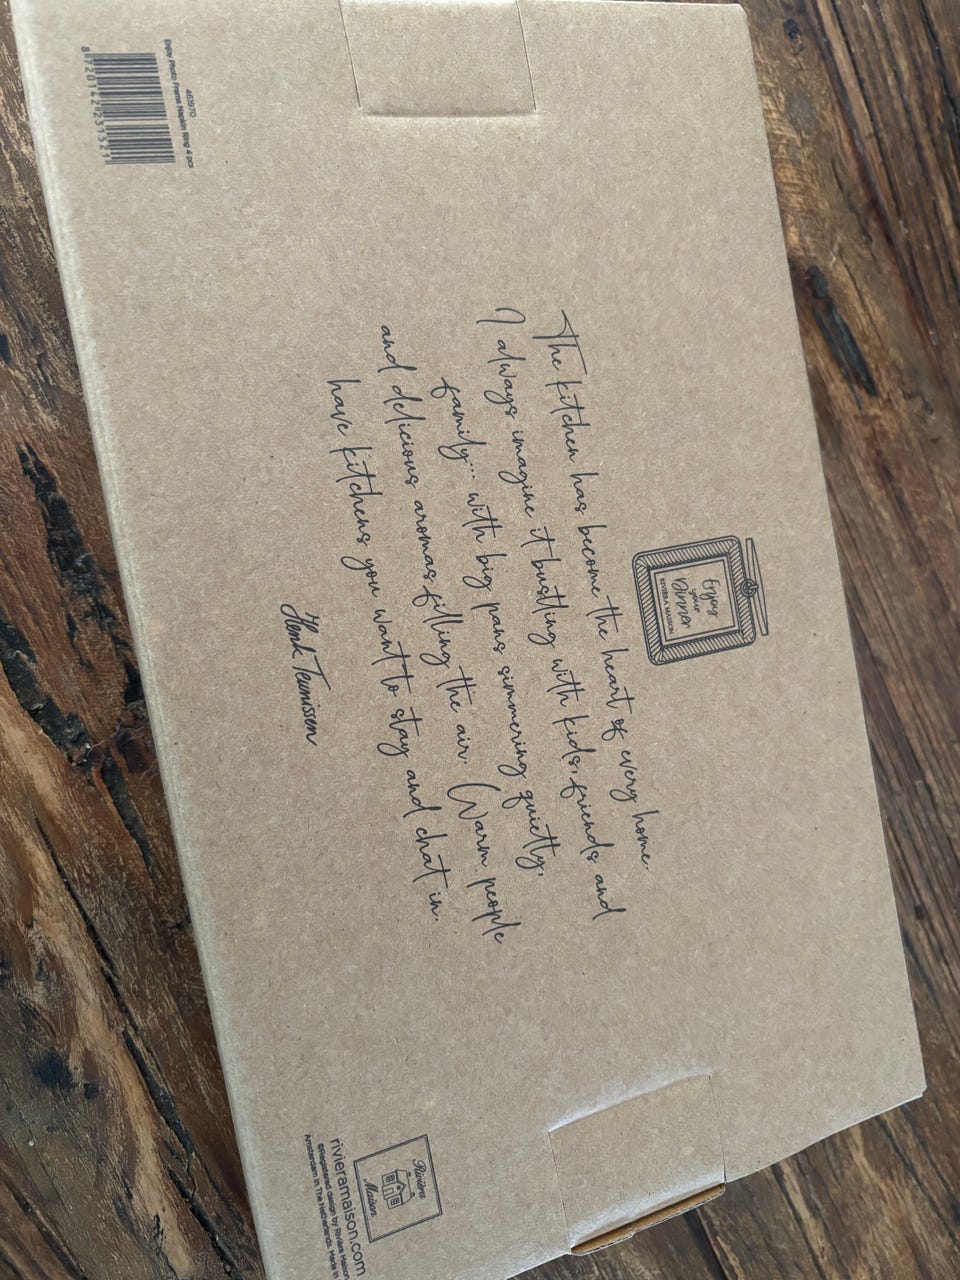 Enjoy
your
Dinner
RIVIERA MAISON
The kitchen has become the heart of every home.
I always imagine it bustling with kids, friends and
family... with big pans simmering quietly,
and delicious aromas filling the air. Warm people
have kitchens you want to stay and chat in.
Henk Teunissen
461970
Enjoy Photo Frame Napkin Ring 4 pcs
8720142231521
Riviera
Maison
rivieramaison.com
©Registered design by Riviera Maison
Amsterdam in The Netherlands. Made in